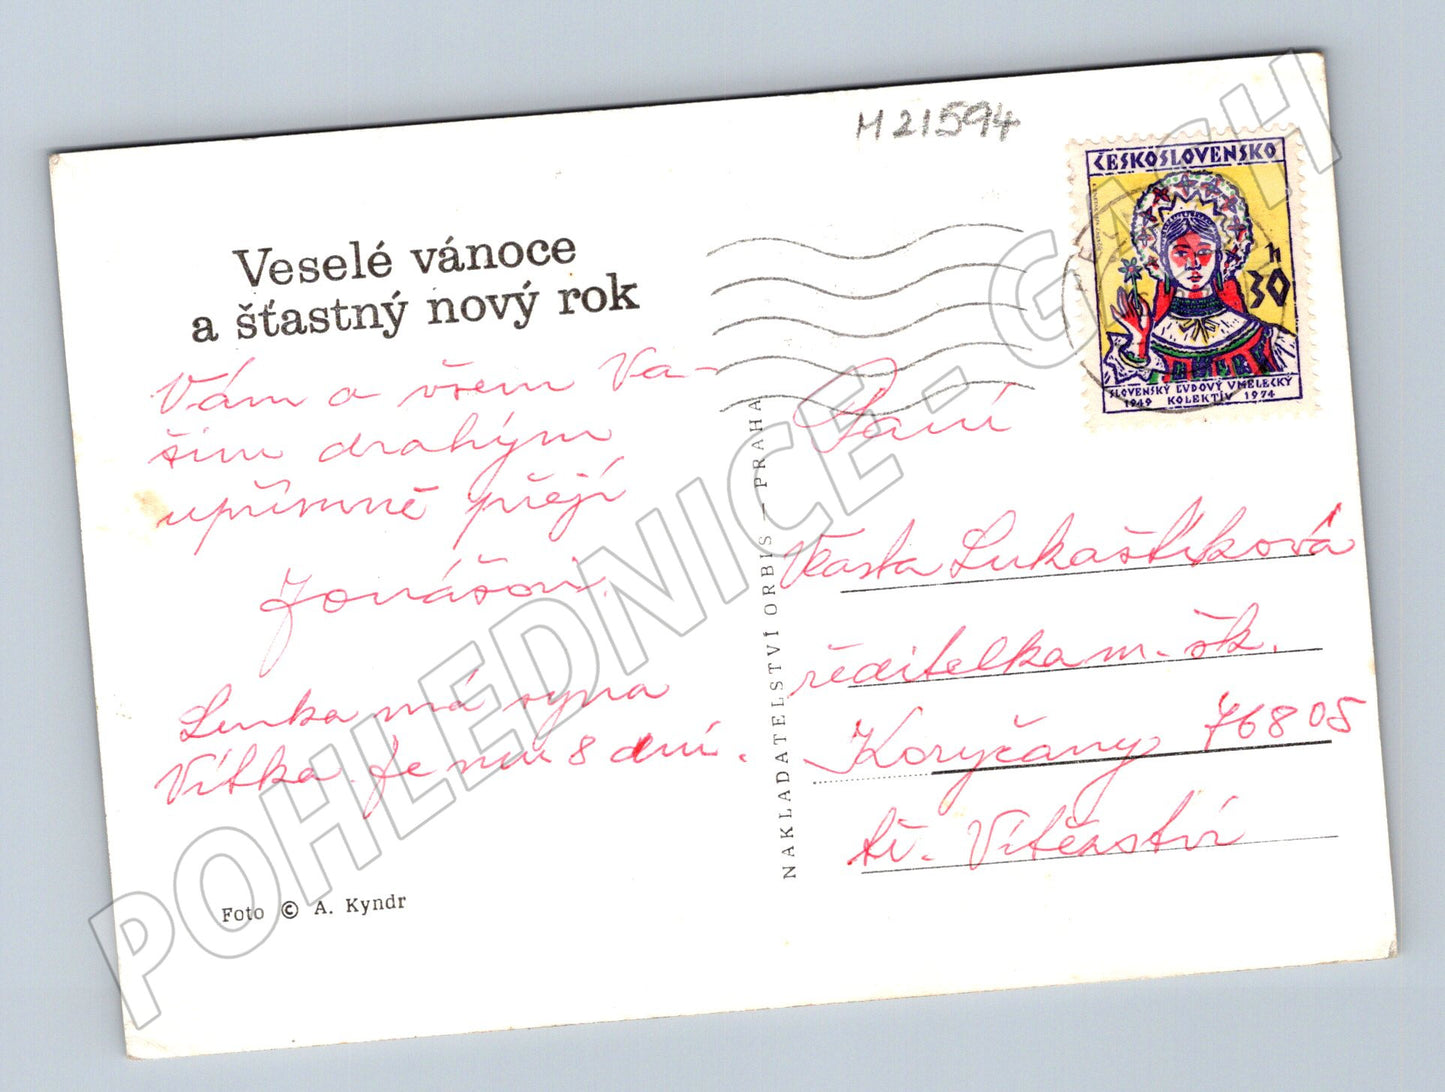 M 21594
ČESKOSLOVENSKO
30 h
SLOVENSKÝ ĽUDOVÝ UMELECKÝ
1949 KOLEKTÍV 1974
Veselé vánoce
a šťastný nový rok
Vám a všem Va-
šim drahým
upřímně přejí
Jonášovi.
Lenka má syna
Vítka. Je mu 8 dní.
Foto © A. Kyndr
NAKLADATELSTVÍ ORBIS — PRAHA
Paní
Vlasta Lukaštíková
ředitelka m. šk.
Koryčany 76805
tř. Vítězství
POHLEDNICE - GASH